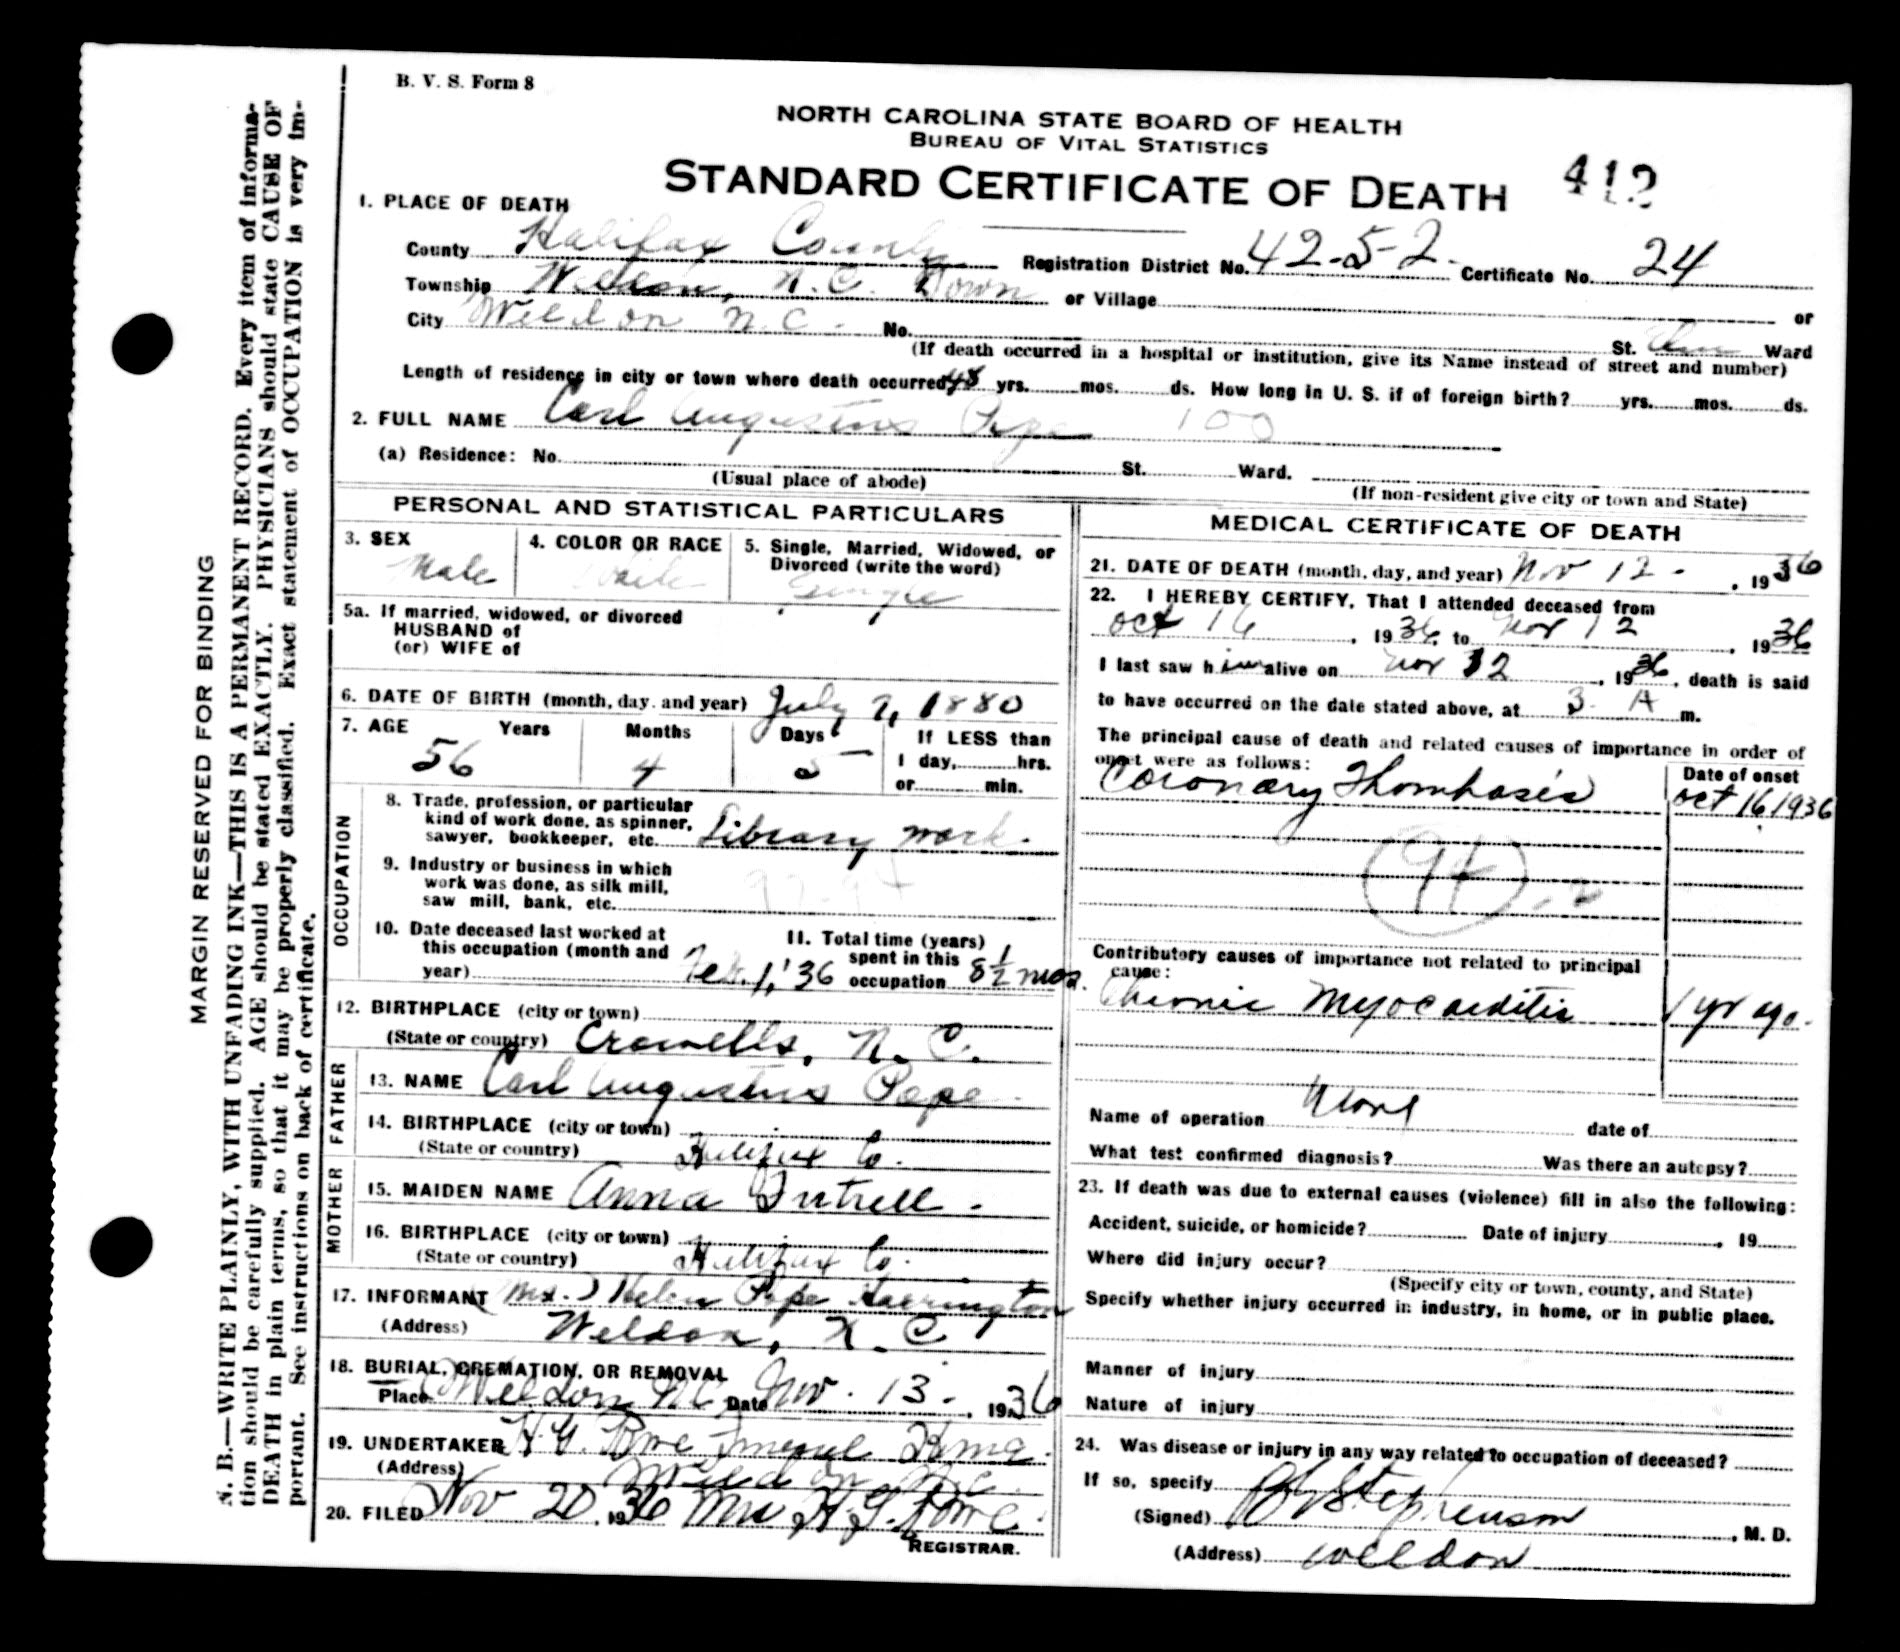 B. V. S. Form 8
NORTH CAROLINA STATE BOARD OF HEALTH
BUREAU OF VITAL STATISTICS
STANDARD CERTIFICATE OF DEATH 412
1. PLACE OF DEATH
County Halifax County Registration District No. 42-52- Certificate No. 24
Township Weldon, N.C. Town or Village or
City Weldon N.C. No. St. Ward
(If death occurred in a hospital or institution, give its Name instead of street and number)
Length of residence in city or town where death occurred 48 yrs. mos. ds. How long in U. S. if of foreign birth? yrs. mos. ds.
2. FULL NAME Carl Augustus Pope 100
(a) Residence: No. St. Ward.
(Usual place of abode) (If non-resident give city or town and State)
PERSONAL AND STATISTICAL PARTICULARS
3. SEX 4. COLOR OR RACE 5. Single, Married, Widowed, or
Divorced (write the word)
Male White Single
5a. If married, widowed, or divorced
HUSBAND of
(or) WIFE of
6. DATE OF BIRTH (month, day, and year) July 7, 1880
7. AGE Years Months Days If LESS than
56 4 5 1 day, hrs.
or min.
OCCUPATION
8. Trade, profession, or particular
kind of work done, as spinner,
sawyer, bookkeeper, etc. Library work
9. Industry or business in which
work was done, as silk mill,
saw mill, bank, etc.
10. Date deceased last worked at
this occupation (month and
year) Feb. 1, '36
11. Total time (years)
spent in this
occupation 8 1/2 mos.
12. BIRTHPLACE (city or town)
(State or country) Crowells, N. C.
FATHER
13. NAME Carl Augustus Pope
14. BIRTHPLACE (city or town)
(State or country) Halifax Co.
MOTHER
15. MAIDEN NAME Anna Futrell.
16. BIRTHPLACE (city or town)
(State or country) Halifax Co.
17. INFORMANT (Mrs.) Helen Pope Harrington
(Address) Weldon, N. C.
18. BURIAL, CREMATION, OR REMOVAL
Place Weldon N.C. Date Nov. 13. 1936
19. UNDERTAKER H.G. Rowe Funeral Home.
(Address) Weldon N.C.
20. FILED Nov 20 1936 Mrs H. G. Rowe.
REGISTRAR.
MEDICAL CERTIFICATE OF DEATH
21. DATE OF DEATH (month, day, and year) Nov 12 - , 1936
22. I HEREBY CERTIFY, That I attended deceased from
Oct 16 , 1936, to Nov 12 , 1936
I last saw him alive on Nov 12 , 1936, death is said
to have occurred on the date stated above, at 3. A m.
The principal cause of death and related causes of importance in order of
onset were as follows:
Date of onset
Coronary Thombosis Oct 16, 1936
94
Contributory causes of importance not related to principal
cause:
Chronic Myocarditis 1 yr ago.
Name of operation None date of
What test confirmed diagnosis? Was there an autopsy?
23. If death was due to external causes (violence) fill in also the following:
Accident, suicide, or homicide? Date of injury , 19
Where did injury occur?
(Specify city or town, county, and State)
Specify whether injury occurred in industry, in home, or in public place.
Manner of injury
Nature of injury
24. Was disease or injury in any way related to occupation of deceased?
If so, specify
(Signed) Stephenson , M. D.
(Address) Weldon
MARGIN RESERVED FOR BINDING
N. B.—WRITE PLAINLY, WITH UNFADING INK—THIS IS A PERMANENT RECORD. Every item of informa-
tion should be carefully supplied. AGE should be stated EXACTLY. PHYSICIANS should state CAUSE OF
DEATH in plain terms, so that it may be properly classified. Exact statement of OCCUPATION is very im-
portant. See instructions on back of certificate.